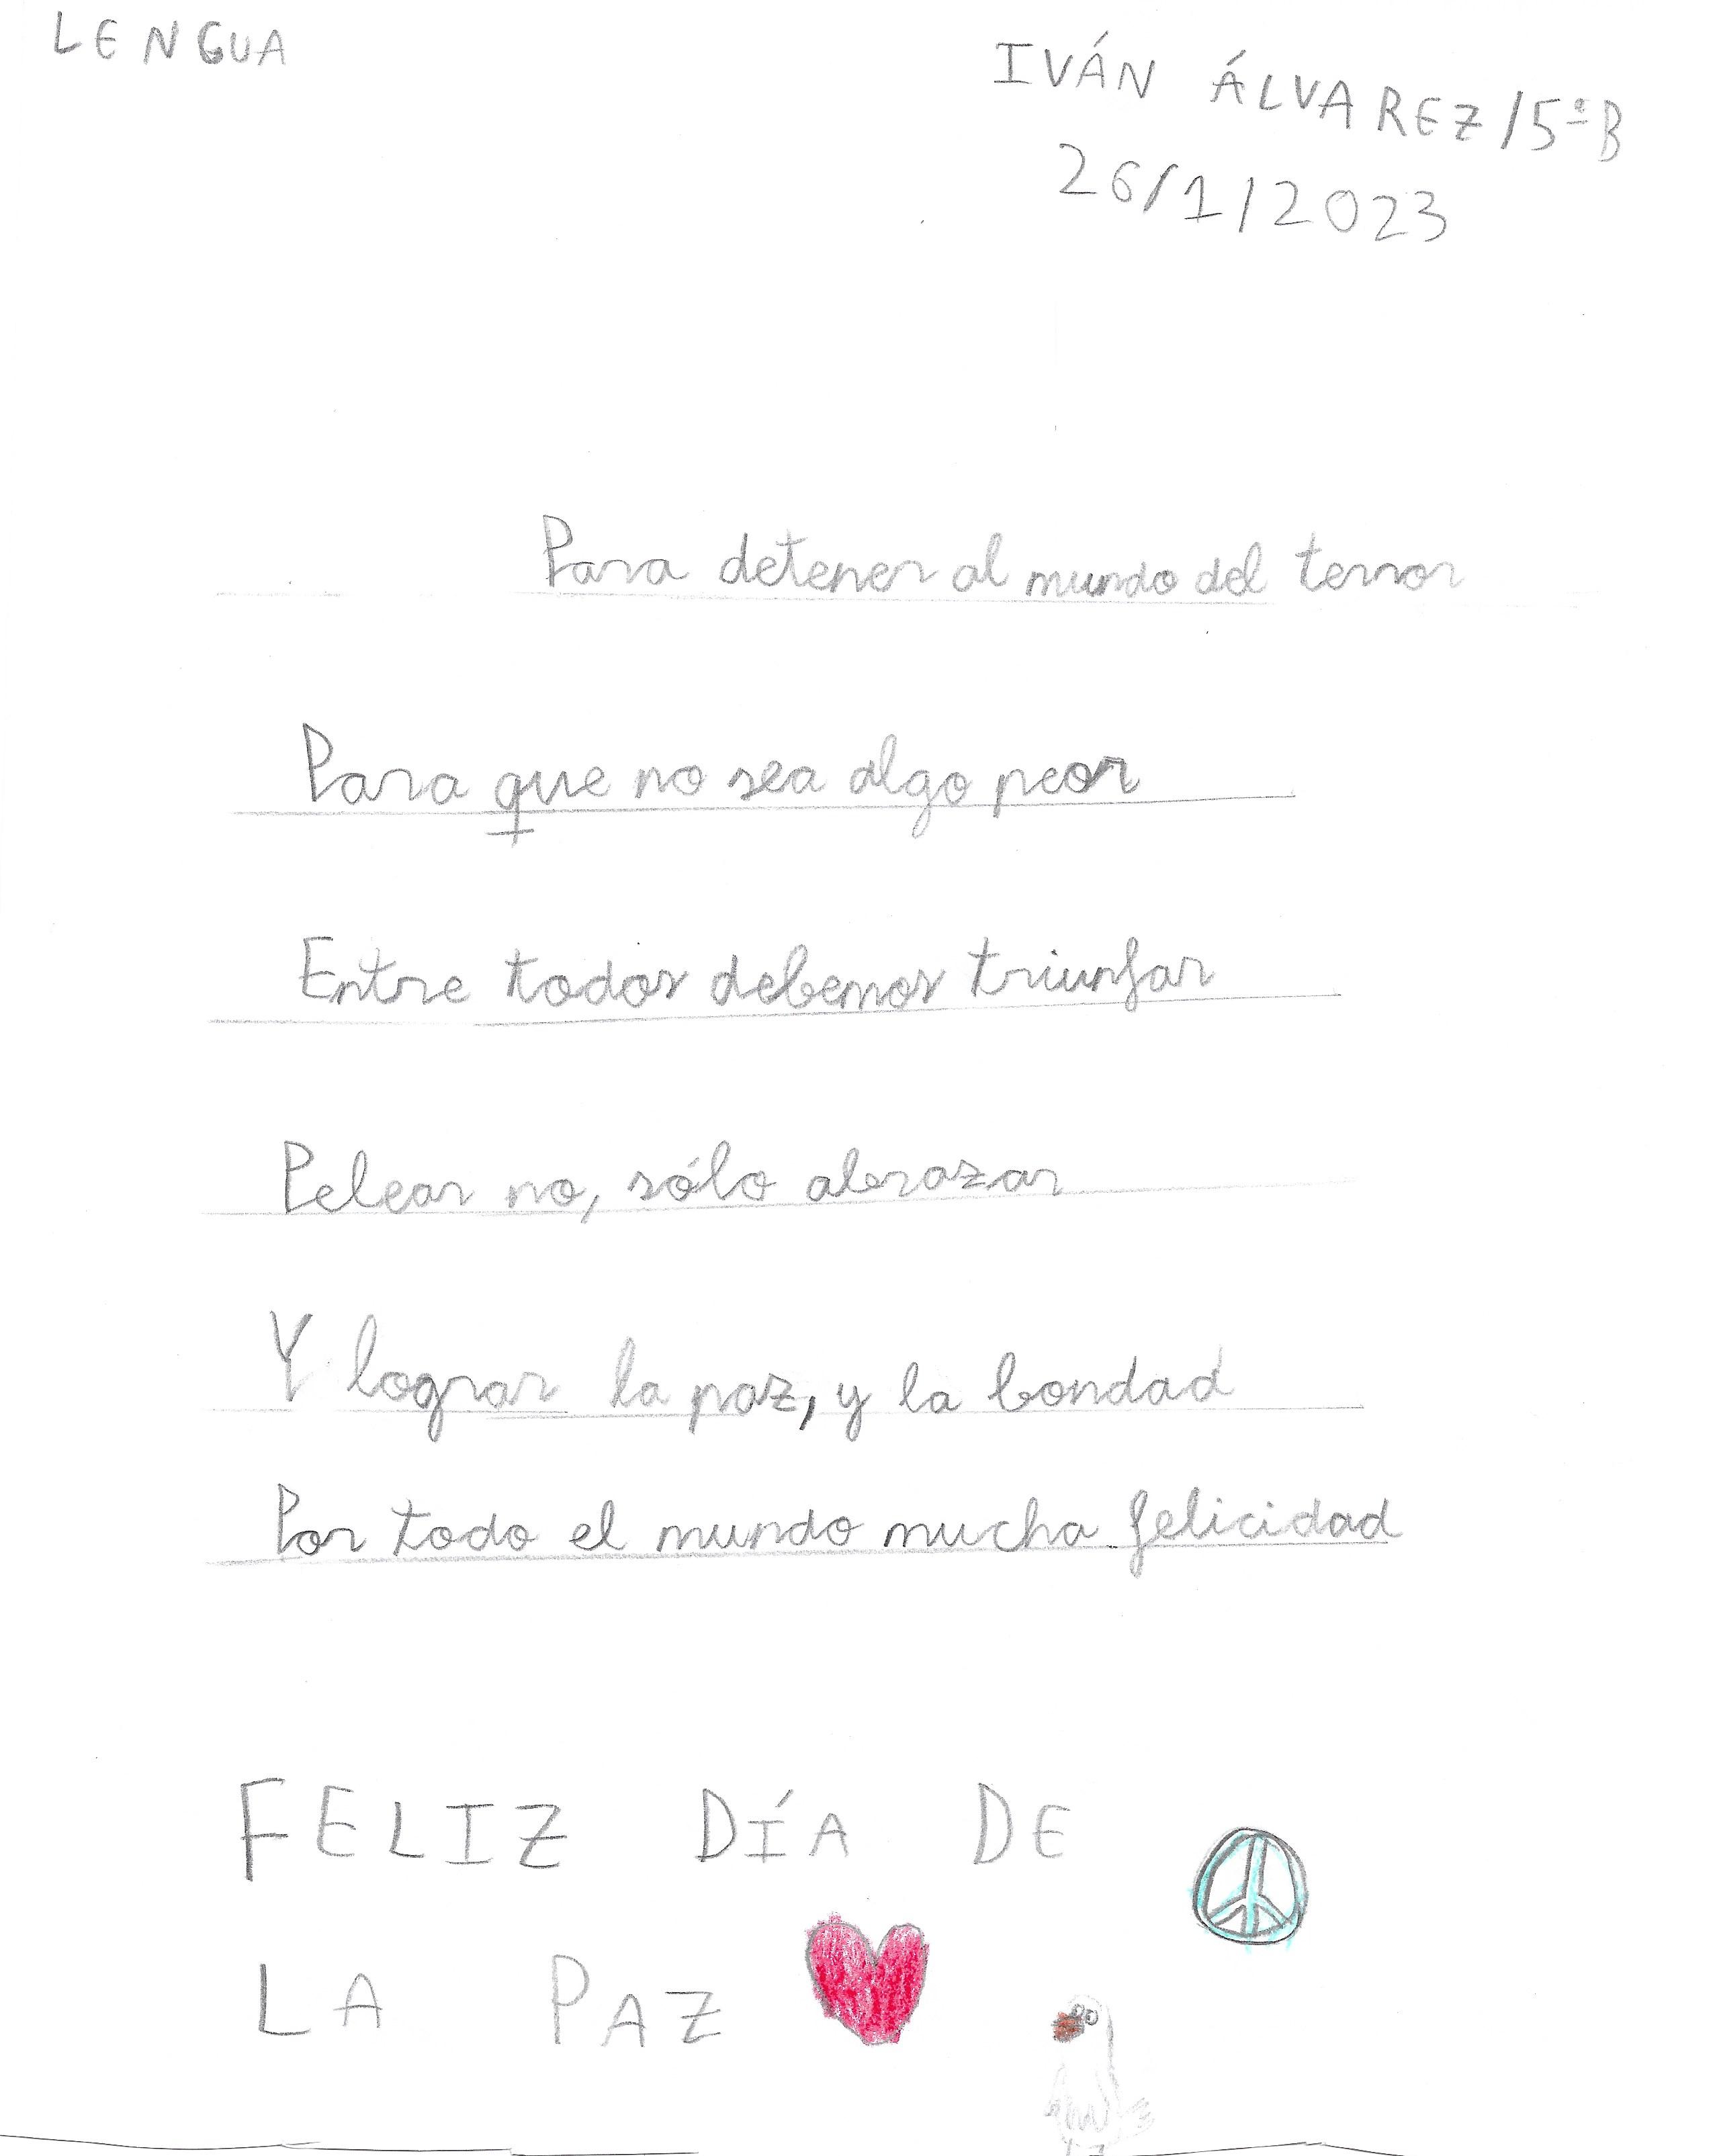 LENGUA
IVÁN ÁLVAREZ/5ºB
26/1/2023
Para detener al mundo del terror
Para que no sea algo peor
Entre todos debemos triunfar
Pelear no, sólo abrazar
Y lograr la paz, y la bondad
Por todo el mundo mucha felicidad
FELIZ DÍA DE
LA PAZ